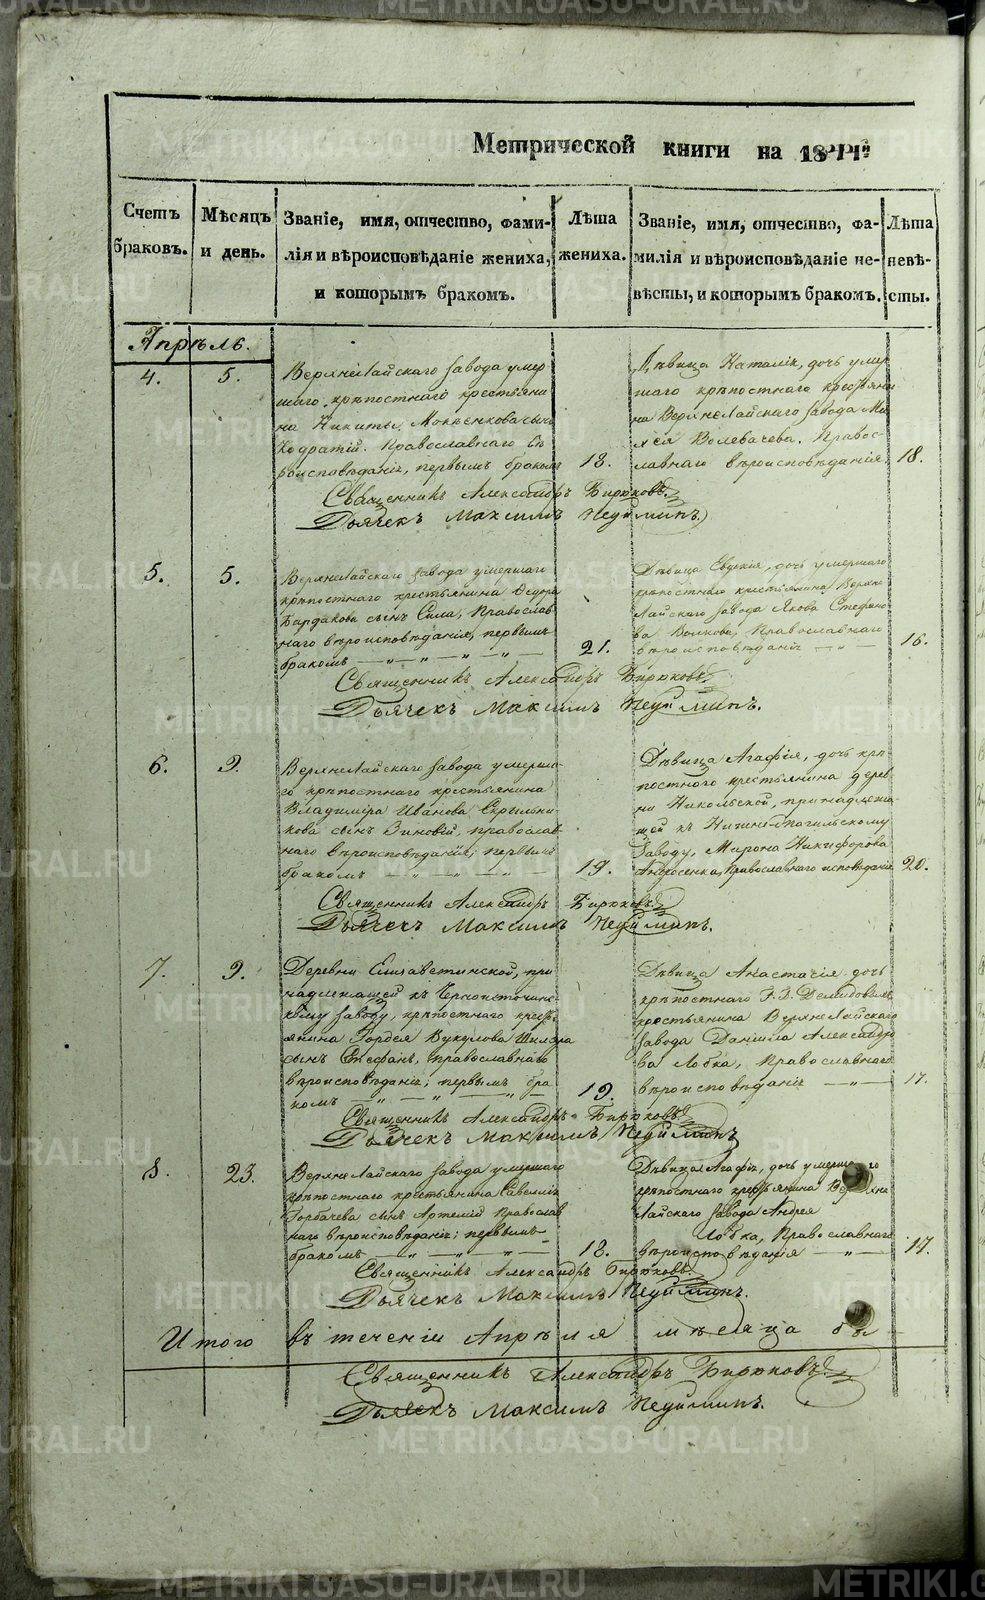 METRIKI.GASO-URAL.RU
Метрической книги на 1844й
Счетъ браковъ.
Мѣсяцъ и день.
Званіе, имя, отчество, фами-
лія и вѣроисповѣданіе жениха,
и которымъ бракомъ.
Лѣта жениха.
Званіе, имя, отчество, фа-
милія и вѣроисповѣданіе не-
вѣсты, и которымъ бракомъ.
Лѣта невѣ-
сты.
Апрѣль.
4.
5.
Верхнелайскаго завода умер-
шаго крѣпостнаго крестьяни
на Никиты сынъ
Кодратій. Православнаго вѣ
роисповѣданія, первымъ бракомъ
18.
Дѣвица Наталія, дочь умер
шаго крѣпостнаго крестьяни
на Верхнелайскаго завода
Волевачева. Правос-
лавнаго вѣроисповѣданія.
18.
Священникъ Александръ Бирюковъ.
Дьячекъ Максимъ Пеуйминъ.
5.
5.
Верхнелайскаго завода умершаго
крѣпостнаго крестьянина Ѳедора
Бардакова сынъ Сила, Православ
наго вѣроисповѣданія, первымъ
бракомъ — „ — „ — „ —
21.
Дѣвица Евдокія, дочь умершаго
крѣпостнаго крестьянина Верхне
Лайскаго завода Якова Стефано
ва Волкова, Православнаго
вѣроисповѣданія — „ —
16.
Священникъ Александръ Бирюковъ.
Дьячекъ Максимъ Пеуйминъ.
6.
9.
Верхнелайскаго завода умерша-
го крѣпостнаго крестьянина
Владиміра Иванова Скрыльни
кова сынъ Зиновій, православ
наго вѣроисповѣданія; первымъ
бракомъ — „ — „ — „ —
19.
Дѣвица Агафія, дочь крѣ-
постнаго крестьянина дерев
ни Никольской, принадлежа-
щей къ Нижнетагильскому
Заводу, Мирона Никифорова
Андросенка, Православнаго исповѣданія
20.
Священникъ Александръ Бирюковъ.
Дьячекъ Максимъ Пеуйминъ.
7.
9.
Деревни Елизаветинской, при
надлежащей къ Черноисточин
скому заводу, крѣпостнаго крест
янина Гордея Вукулова Шилора
сынъ Стефанъ, православнаго
вѣроисповѣданія; первымъ бра
комъ — „ — „ — „ —
19.
Дѣвица Анастасія дочь
крѣпостнаго Г.Г. Демидовыхъ
крестьянина Верхнелайскаго
завода Даніила Александро
ва Лобка, Православнаго
вѣроисповѣданія — „ —
17.
Священникъ Александръ Бирюковъ
Дьячекъ Максимъ Пеуйминъ
8.
23.
Верхнелайскаго завода умершаго
крѣпостнаго крестьянина Савелія
Горбачева сынъ Артемій Православ
наго вѣроисповѣданія; первымъ
бракомъ — „ — „ — „ —
18.
Дѣвица Агафія, дочь умершаго
крѣпостнаго крестьянина Верхне
Лайскаго завода Андрея
Лобка, Православнаго
вѣроисповѣданія — „ —
17.
Священникъ Александръ Бирюковъ.
Дьячекъ Максимъ Пеуйминъ.
Итого въ теченіи Апрѣля мѣсяца
Священникъ Александръ Бирюковъ
Дьячекъ Максимъ Пеуйминъ.
METRIKI.GASO-URAL.RU